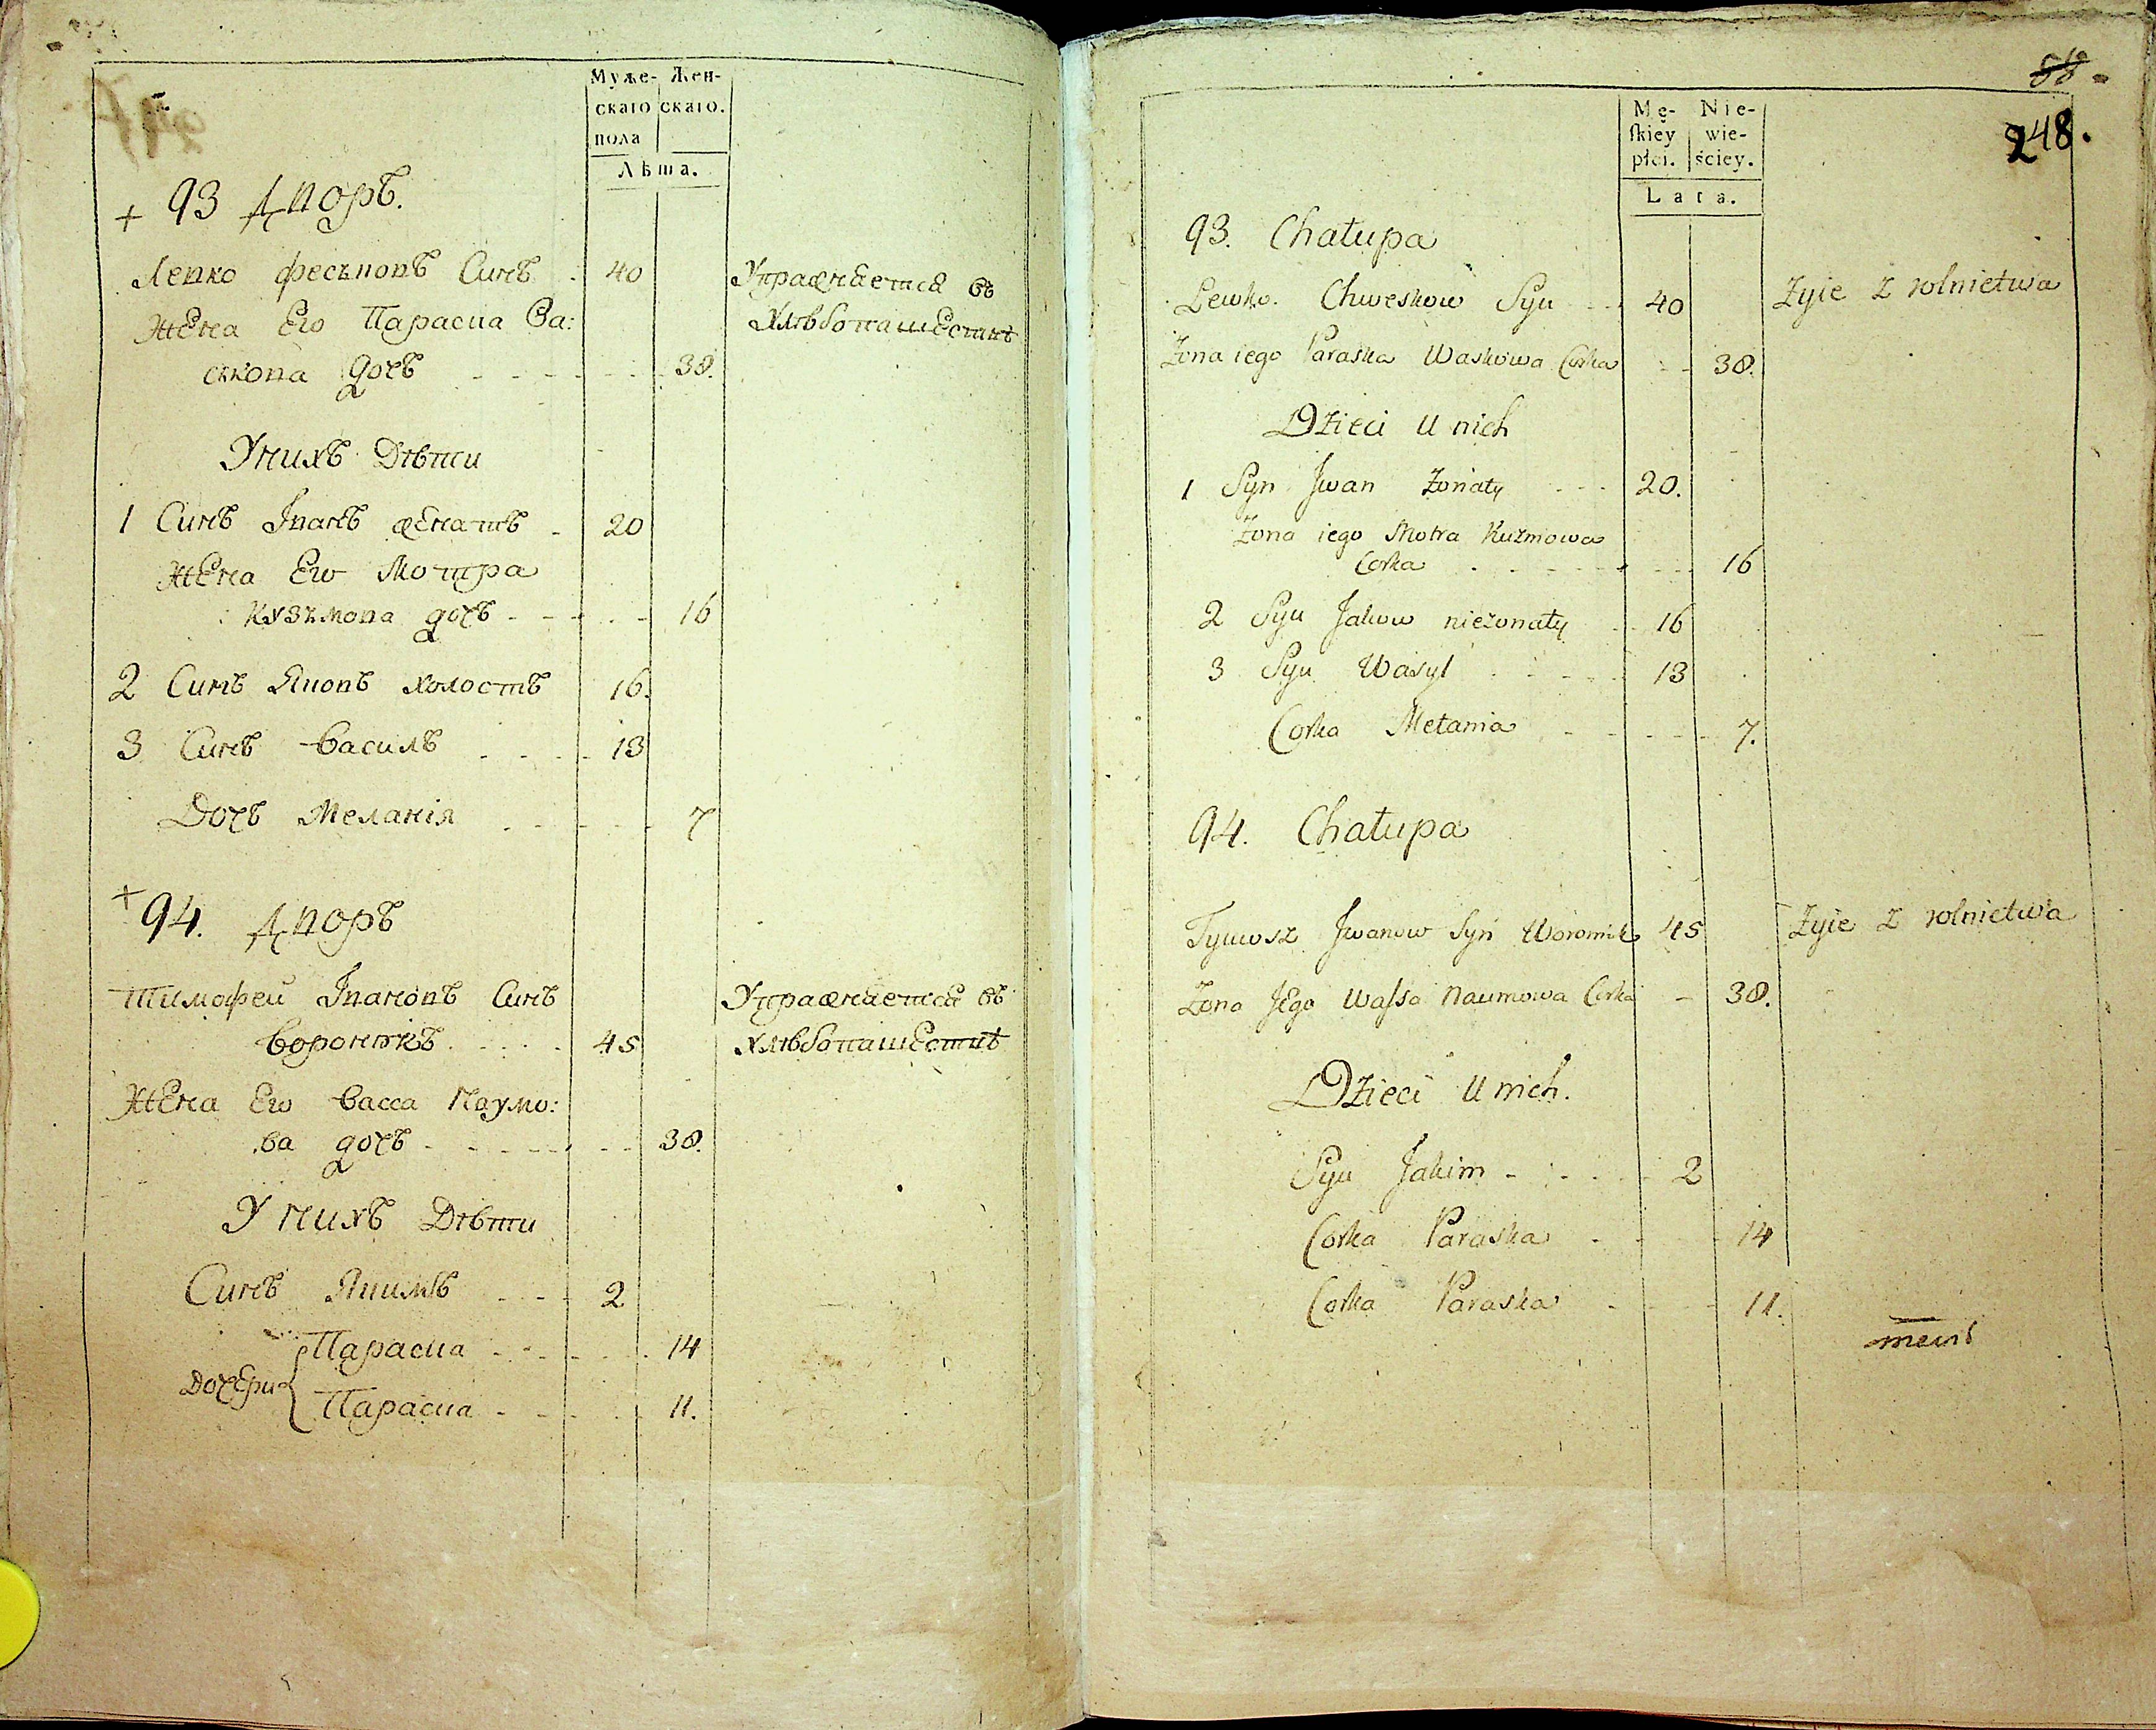 Муже- Жен-
скаго скаго.
пола
Лѣта.
+ 93 Дворъ.
Левко Феськовъ Синъ 40 Упражняется въ
Жена Его Параска Ва: Хлѣбопашествѣ
ськова дочь 38.
У нихъ Дѣти
1 Синъ Іванъ женатъ 20
Жена Его Мотра
Кузьмова дочь 16
2 Синъ Яковъ холостъ 16.
3 Синъ Василь 13
Дочь Меланія 7
+ 94. Дворъ
Тимофей Івановъ Синъ Упражняется въ
Воронѣкъ 45 Хлѣбопашествѣ
Жена Его Васса Наумо:
ва дочь 38.
У нихъ Дѣти
Синъ Якимъ 2
Параска 14
Дочери
Параска 11.
58
248.
Mę- Nie-
ſkiey wie-
płci. ściey.
Lata.
93. Chałupa
Lewko Chweskow Syn 40 Zyie z rolnictwa
Zona iego Paraska Waskowa Corka 38.
Dzieci U nich
1 Syn Jwan żonaty 20.
Zona iego Motra Kuzmowa
Corka 16
2 Syn Jakow nieżonaty 16
3 Syn Wasyl 13
Corka Mełania 7.
94. Chałupa
Tymosz Jwanow Syn Woronik 45 Zyie z rolnictwa
Zona Jego Waſsa Naumowa Corka 38.
Dzieci U nich.
Syn Jakim 2
Corka Paraska 14
Corka Paraska 11.